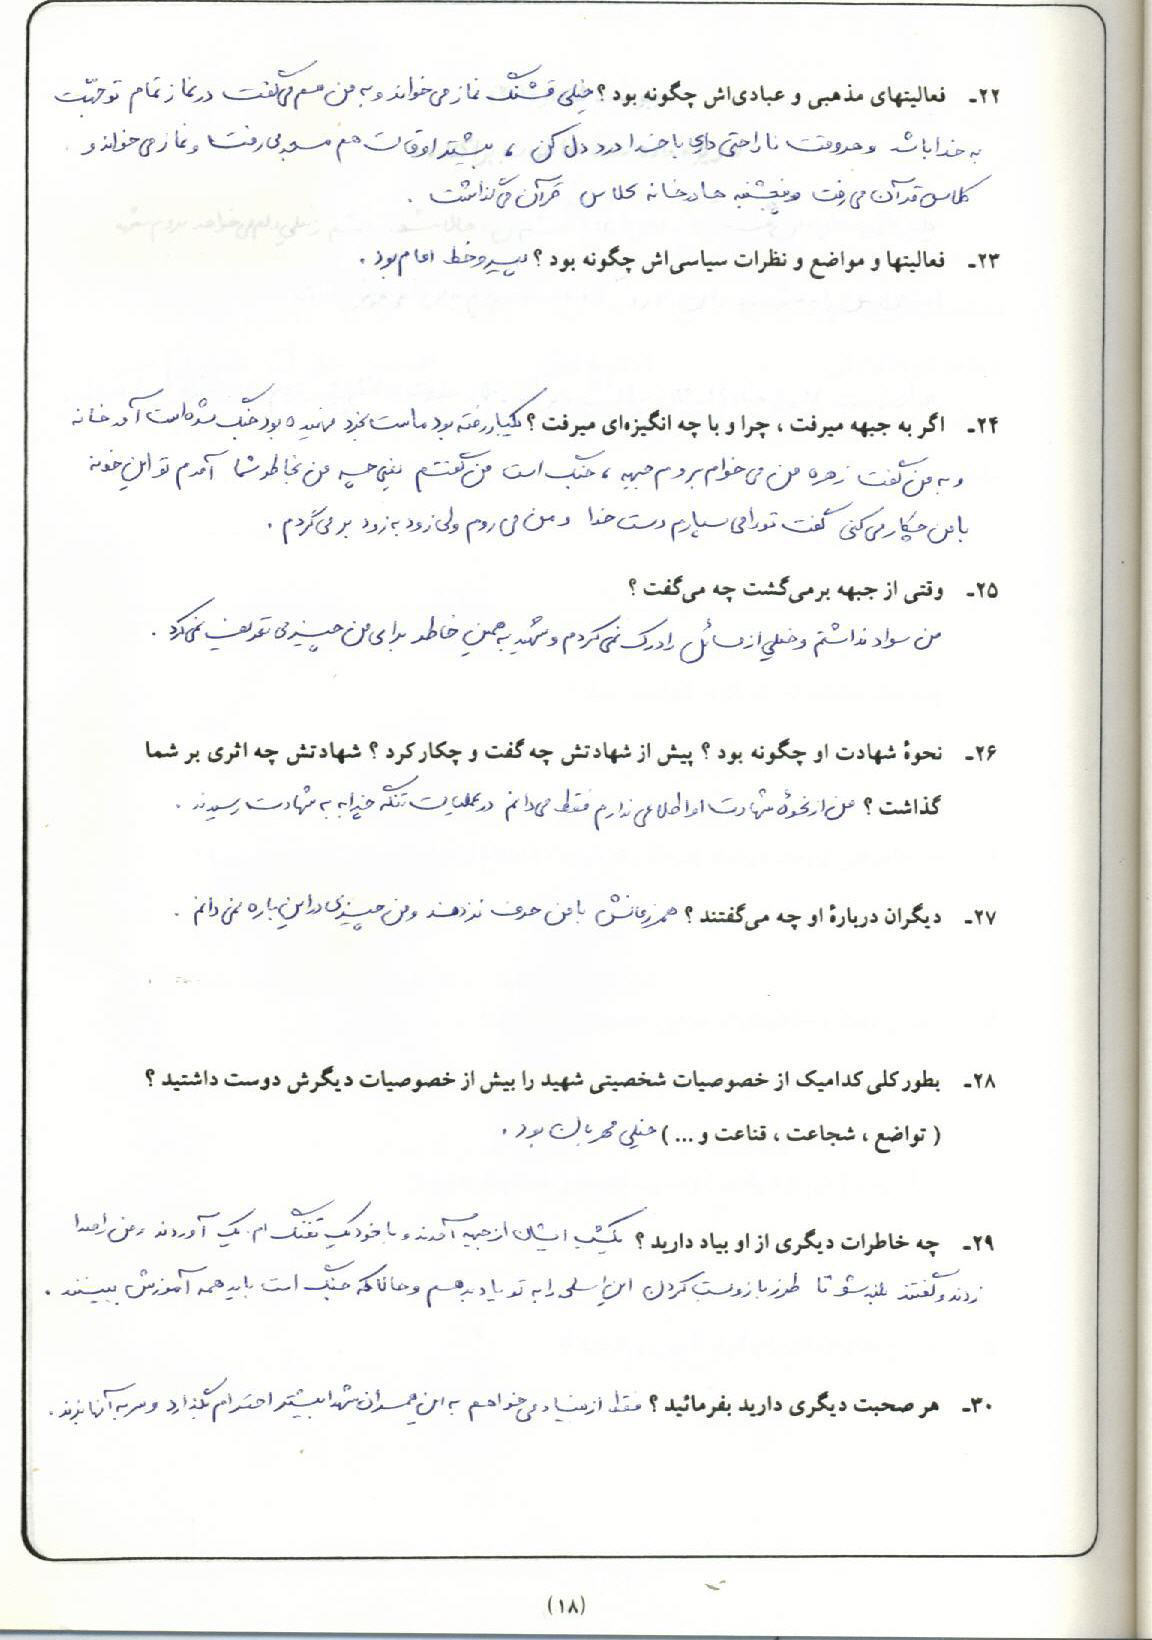 ۲۲ـ فعالیتهای مذهبی و عبادی‌اش چگونه بود؟ خیلی قشنگ نماز می‌خواند و به من هم می‌گفت در نماز تمام توجهت
به خدا باشد و هر وقت ناراحتی داری با خدا درد دل کن ، بیشتر اوقات هم مسجد می‌رفت و نماز می‌خواند و
کلاس قرآن می‌رفت و پنجشنبه ها در خانه کلاس قرآن می‌گذاشت .
۲۳ـ فعالیتها و مواضع و نظرات سیاسی‌اش چگونه بود ؟ پیرو خط امام بود .
۲۴ـ اگر به جبهه میرفت ، چرا و با چه انگیزه‌ای میرفت ؟ یکبار رفته بود ماست بخرد فهمیده بود جنگ شده است آمد خانه
و به من گفت زهره من می خوام بروم جبهه ، جنگ است من گفتم یعنی چه من بخاطر شما آمدم تو این خونه
با من چکار می‌کنی گفت تو را می سپارم دست خدا و من می روم ولی زود به زود بر می گردم .
۲۵ـ وقتی از جبهه برمی‌گشت چه می‌گفت ؟
من سواد نداشتم و خیلی از مسائل را درک نمی کردم و شهید به همین خاطر برای من چیزی تعریف نمی‌کرد .
۲۶ـ نحوهٔ شهادت او چگونه بود ؟ پیش از شهادتش چه گفت و چکار کرد ؟ شهادتش چه اثری بر شما
گذاشت ؟ من از نحوهٔ شهادت او اطلاعی ندارم فقط می‌دانم در عملیات تنگه چزابه به شهادت رسیدند .
۲۷ـ دیگران دربارهٔ او چه می‌گفتند ؟ همرزمانش با من حرف نزدند و من چیزی در این باره نمی دانم .
۲۸ـ بطور کلی کدامیک از خصوصیات شخصیتی شهید را بیش از خصوصیات دیگرش دوست داشتید ؟
( تواضع ، شجاعت ، قناعت و ... ) خیلی مهربان بود .
۲۹ـ چه خاطرات دیگری از او بیاد دارید ؟ یکشب ایشان از جبهه آمدند و با خود یک تفنگ ام یک آوردند و من را صدا
زدند و گفتند بلند شو تا طرز باز و بست کردن این اسلحه را به تو یاد بدهم و حالا که جنگ است باید همه آموزش ببینند .
۳۰ـ هر صحبت دیگری دارید بفرمائید ؟ فقط از بنیاد می خواهم به این همسران شهدا بیشتر احترام بگذارد و سر به آنها بزند .
(۱۸)